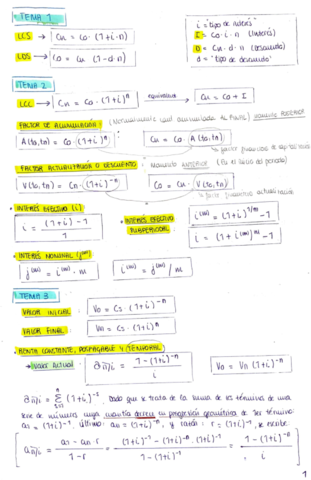 TEMA 1
LCS → Cn = Co · (1+i·n)
LDS → Co = Cn (1-d·n)
i = "tipo de interés"
I = Co · i · n (interés)
D = Cn · d · n (descuento)
d = "tipo de descuento"
TEMA 2
LCC → Cn = Co · (1+i)^n equivalente Cn = Co + I
FACTOR DE ACUMULACIÓN: MOMENTO POSTERIOR
A(to,tn) = Co · (1+i)^n Cn = Co · A(to,tn)
FACTOR ACTUALIZACIÓN O DESCUENTO: MOMENTO ANTERIOR
V(to,tn) = Cn · (1+i)^-n Co = Cn · V(to,tn)
• INTERÉS EFECTIVO (i)
i = (1+i)^-1 / 1
• INTERÉS EFECTIVO SUBPERIODAL:
i^(m) = (1+i)^1/m - 1
i = (1+i^(m))^m - 1
• INTERÉS NOMINAL (j^(m))
j^(m) = i^(m) · m i^(m) = j^(m)/m
TEMA 3
VALOR INICIAL: Vo = Cs · (1+i)^-n
VALOR FINAL: Vn = Cs · (1+i)^n
• RENTA CONSTANTE, POSPAGABLE Y TEMPORAL
→ VALOR ACTUAL: an]i = 1-(1+i)^-n / i Vo = Vn (1+i)^-n
an]i = Σ (1+i)^-s. Dado que se trata de la suma de los términos de una
serie de números cuya cuantía decrece en progresión geométrica de 1er término
a1 = (1+i)^-1, último: an = (1+i)^-n, y razón: r = (1+i)^-1, se escribe:
an]i = a1 - an · r / 1-r = (1+i)^-1 - (1+i)^-n · (1+i)^-1 / 1-(1+i)^-1 = 1-(1+i)^-n / i
1